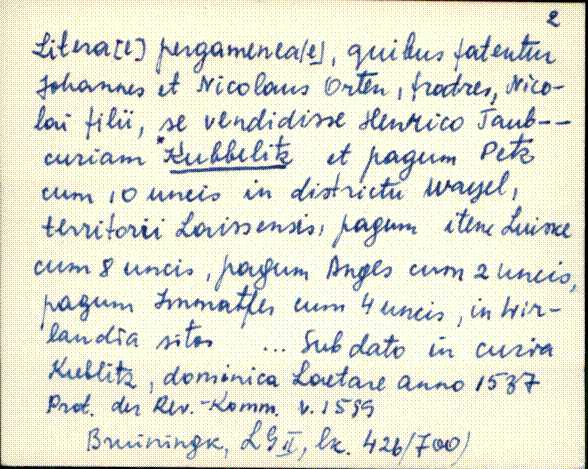 2
Litera[e] pergamenea[e], quibus fatentur
Johannes et Nicolaus Orten, fratres, Nico-
lai filii, se vendidisse Henrico Taub--
curiam Kubbelitz et pagum Petz
cum 10 uncis in districtu Wayel,
territorii Laissensis, pagum item Luisce
cum 8 uncis, pagum Anges cum 2 uncis,
pagum Immatfes cum 4 uncis, in Wir-
landia sitos ... Sub dato in curia
Kublitz, dominica Laetare anno 1537
Prot. der Rev.-Komm. v. 1599
Bruiningk, LG II, lk. 426/700)